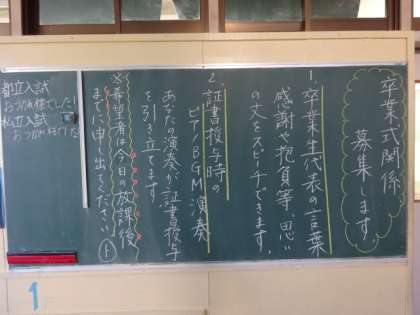 卒業式関係
募集します。
1. 卒業生代表の言葉
感謝や抱負等、思い
の丈をスピーチできます。
2. 証書授与時の
ピアノBGM演奏
あなたの演奏が証書授与
を引き立てます
※希望者は今日の放課後
までに申し出てください
都立入試
おつかれ様でした!
私立入試
おつかれ様でした
1